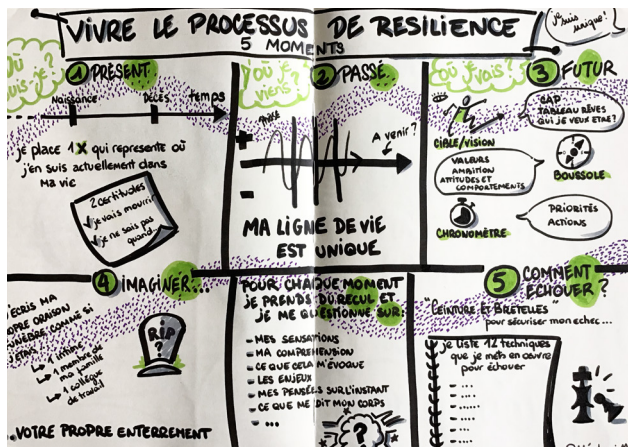 VIVRE LE PROCESSUS DE RESILIENCE
5 MOMENTS
je suis unique!
OÙ
suis-je?
1 PRÉSENT
Naissance
Décès
Temps
je place 1 X qui représente où
j'en suis actuellement dans
ma vie
2 certitudes
je vais mourir
je ne sais pas
quand...
D'OÙ je
viens?
2 PASSÉ
+
-
A venir?
MA LIGNE DE VIE
EST UNIQUE
OÙ je
vais?
3 FUTUR
CIBLE/VISION
CAP
TABLEAU RÊVES
QUI JE VEUX ETRE?
VALEURS
AMBITION
ATTITUDES ET
COMPORTEMENTS
BOUSSOLE
CHRONOMÈTRE
PRIORITÉS
ACTIONS
4 IMAGINER...
ECRIS MA
ORAISON
FUNÈBRE COMME SI
1 intime
1 membre de
ma famille
1 collègue
de travail
RIP
?
VOTRE PROPRE ENTERREMENT
POUR CHAQUE MOMENT
JE PRENDS DU RECUL ET
JE ME QUESTIONNE SUR:
- MES SENSATIONS
- MA COMPREHENSION
- CE QUE CELA M'ÉVOQUE
- LES ENJEUX
- MES PENSÉES SUR L'INSTANT
- CE QUE ME DIT MON CORPS
- ...
?
5 COMMENT
ECHOUER?
"CEINTURE ET BRETELLES"
pour sécuriser mon echec...
je liste 12 techniques
que je mets en œuvre
pour échouer